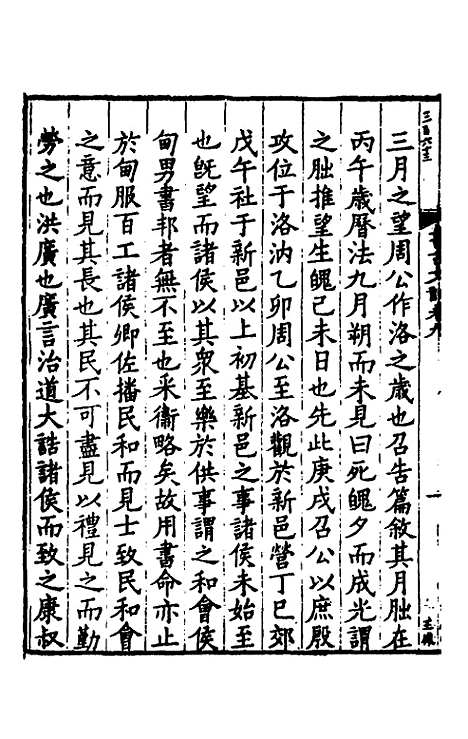 三月之望周公作洛之歲也召告篇敘其月朏在
丙午歲曆法九月朔而未見曰死魄夕而成光謂
之朏推望生魄己未日也先此庚戌召公以庶殷
攻位于洛汭乙卯周公至洛觀於新邑營丁巳郊
戊午社于新邑以上初基新邑之事諸侯未始至
也旣望而諸侯以其衆至樂於供事謂之和會侯
甸男書邦者無不至也采衞略矣故用書命亦止
於甸服百工諸侯卿佐播民和而見士致民和會
之意而見其長也其民不可盡見以禮見之而勤
勞之也洪廣也廣言治道大誥諸侯而致之康叔